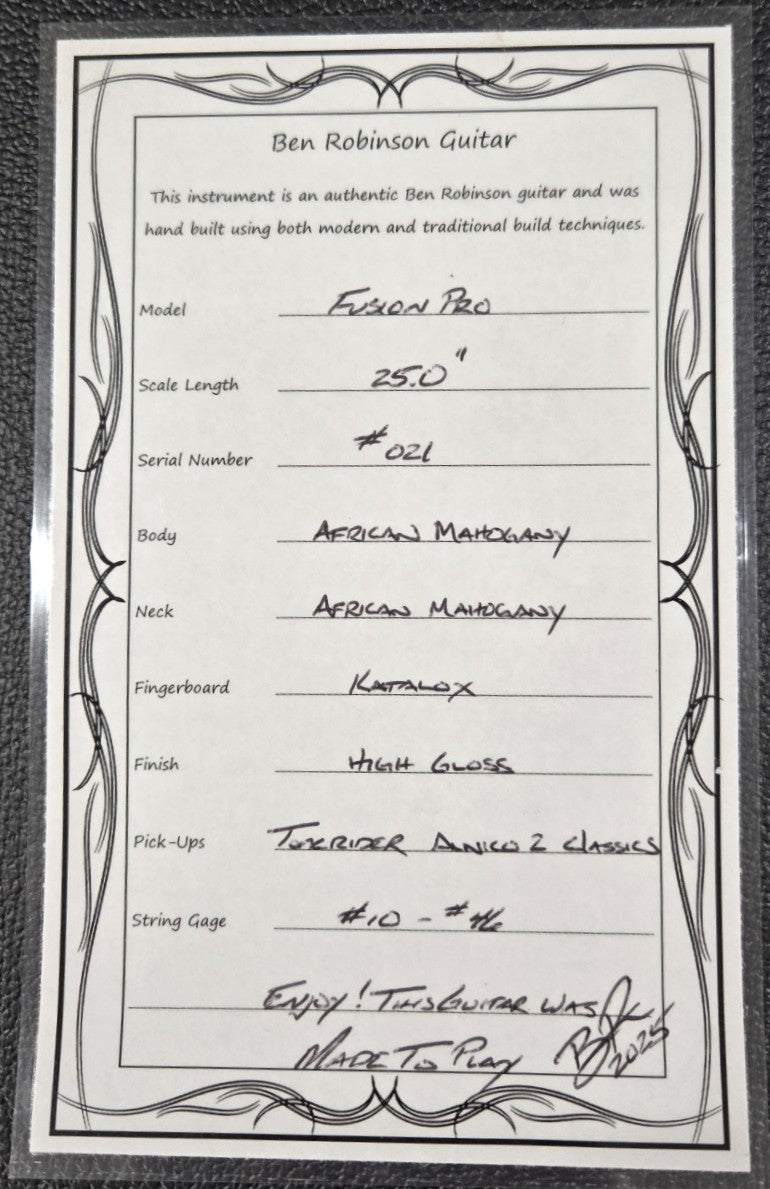 Ben Robinson Guitar
This instrument is an authentic Ben Robinson guitar and was
hand built using both modern and traditional build techniques.
Model FUSION PRO
Scale Length 25.0"
Serial Number #021
Body AFRICAN MAHOGANY
Neck AFRICAN MAHOGANY
Fingerboard KATALOX
Finish HIGH GLOSS
Pick-Ups TONERIDER ALNICO 2 CLASSICS
String Gage #10 - #46
ENJOY! THIS GUITAR WAS
MADE TO PLAY 2025